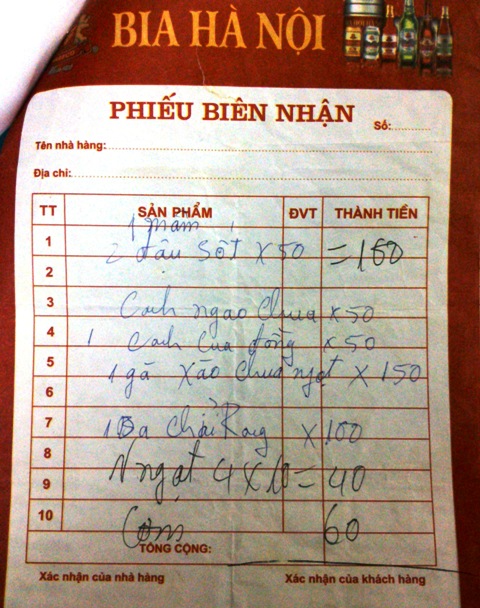 BIA HÀ NỘI
PHIẾU BIÊN NHẬN
Số:
Tên nhà hàng:
Địa chỉ:
TT SẢN PHẨM ĐVT THÀNH TIỀN
1 1 mắm
2 đậu sốt x 50 = 150
2
3 Canh ngao chua x 50
4 1 canh cua đồng x 50
5 1 gà xào chua ngọt x 150
6
7 1 Ba chỉ Rang x 100
8 N ngọt 4 x 10 = 40
9
10 Cơm 60
TỔNG CỘNG:
Xác nhận của nhà hàng Xác nhận của khách hàng